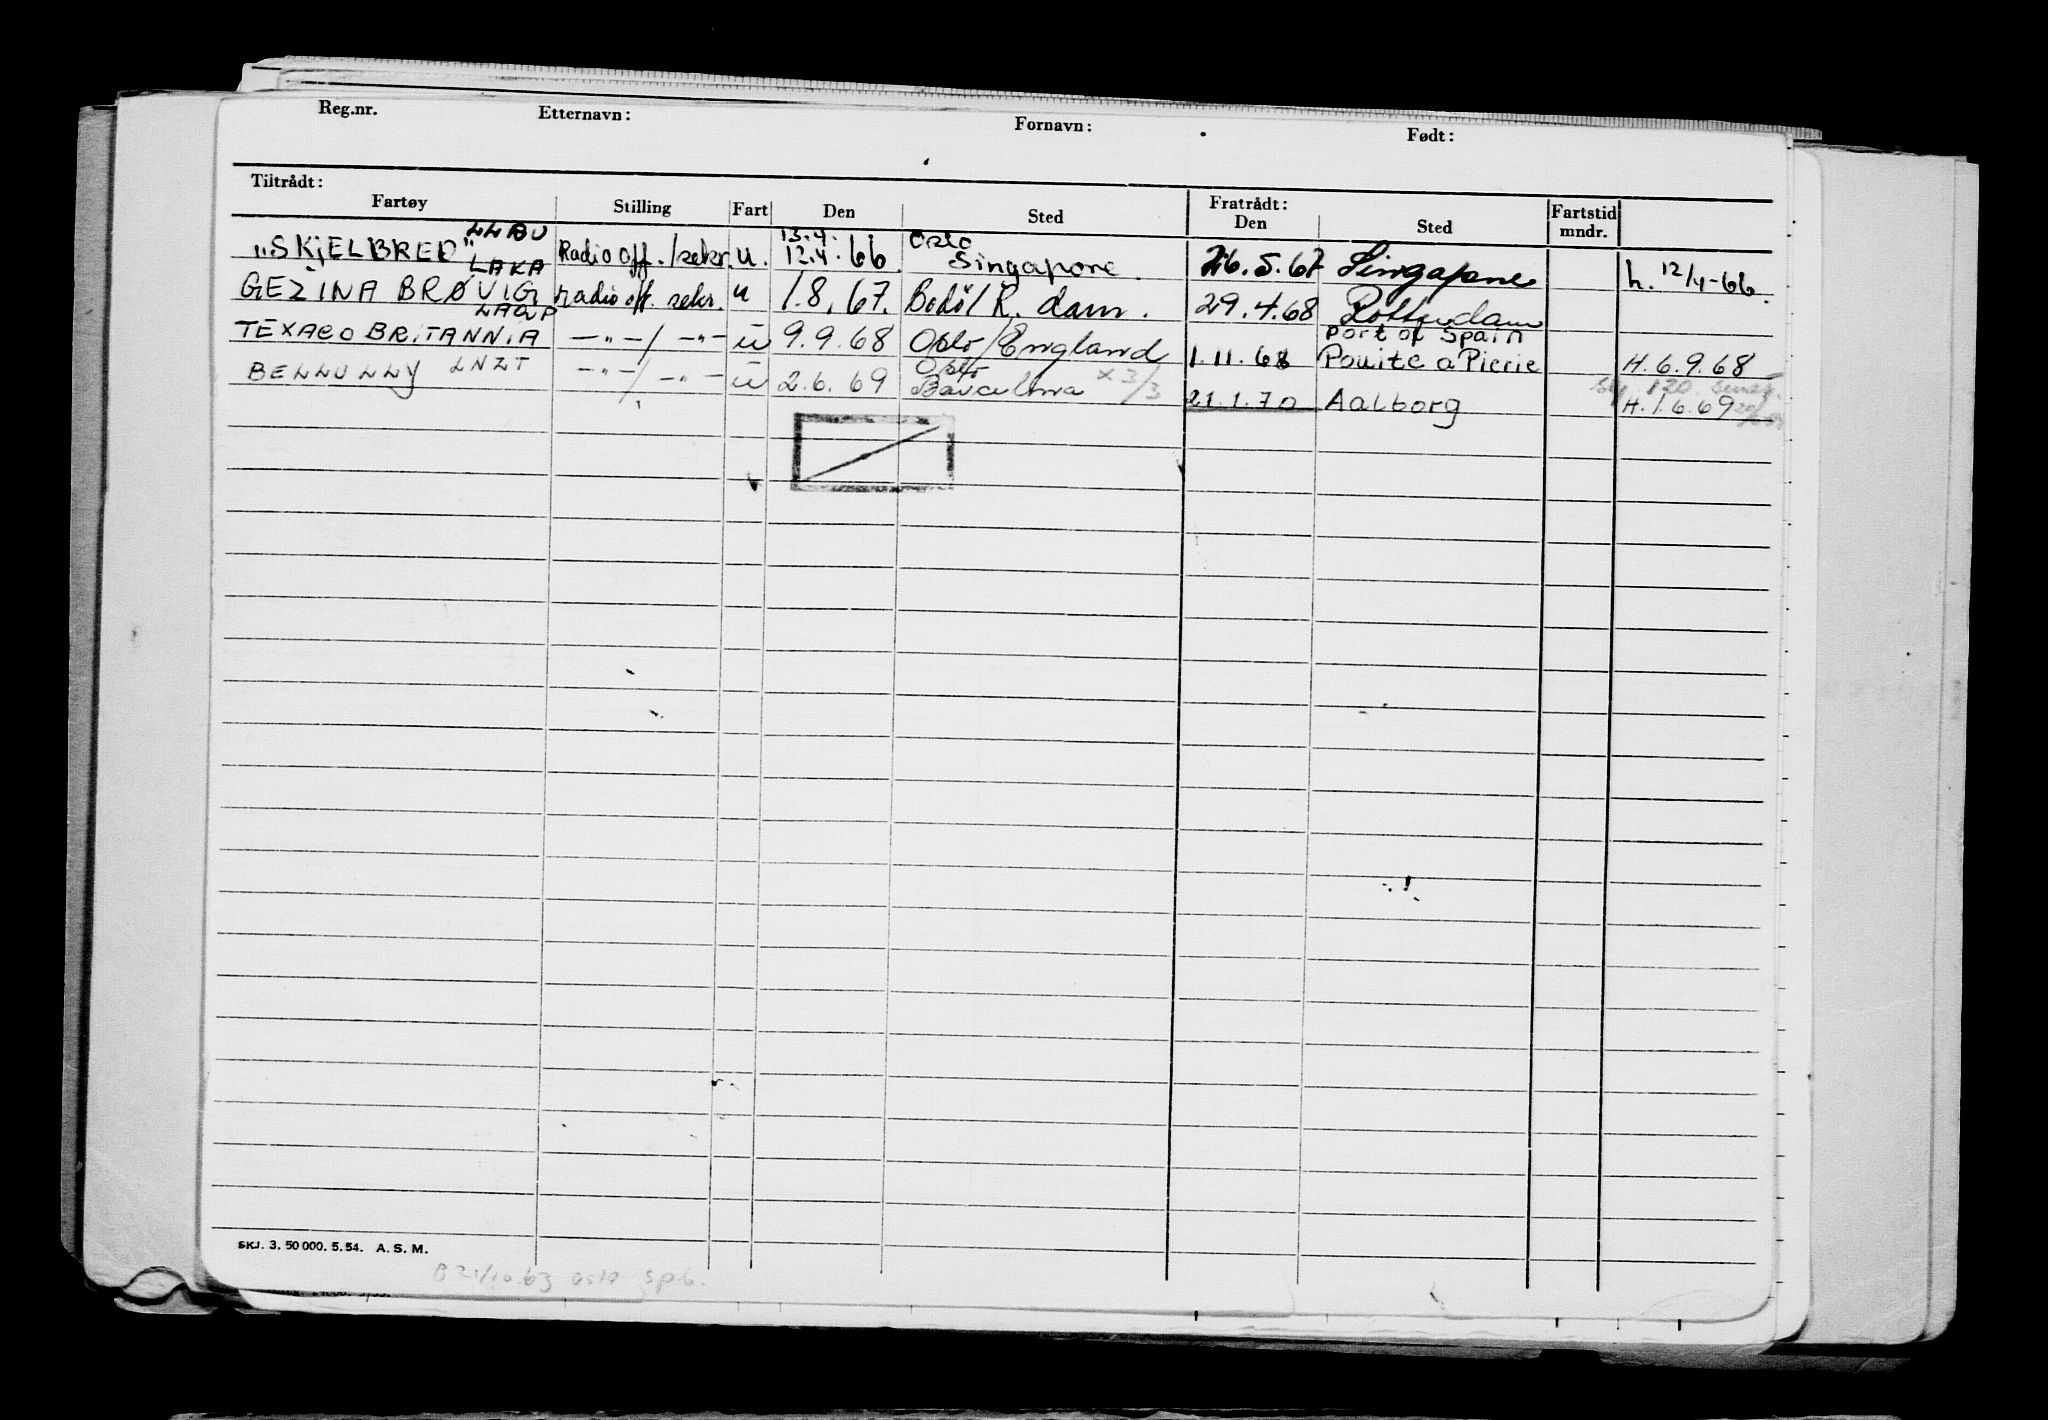 Reg.nr. Etternavn: Fornavn: Født:
Tiltrådt: Fratrådt:
Fartøy Stilling Fart Den Sted Den Sted Fartstid mndr.
LLBU 13.4. Oslo
„SKjELBRED" Radio off./sekr. u. 12.4.66. Singapore. 26.5.67 Singapore h. 12/4-66.
LAKA
GEZINA BRØVIG radio off. sekr. u 1.8.67. Bodö/ R. dam. 29.4.68 Rotterdam
LAQP Port of Spain
TEXACO BRITANNIA —"—/ —"— u 9.9.68 Oslo/England 1.11.68 Pouite a Pierie H.6.9.68
Oslo
BELLULLY LNZT —"—/ —"— u 2.6.69 x 3/3 21.1.70 Aalborg H.1.6.69
SKJ. 3. 50 000. 5. 54. A. S. M.
B 21/10.63 Oslo sp.6.